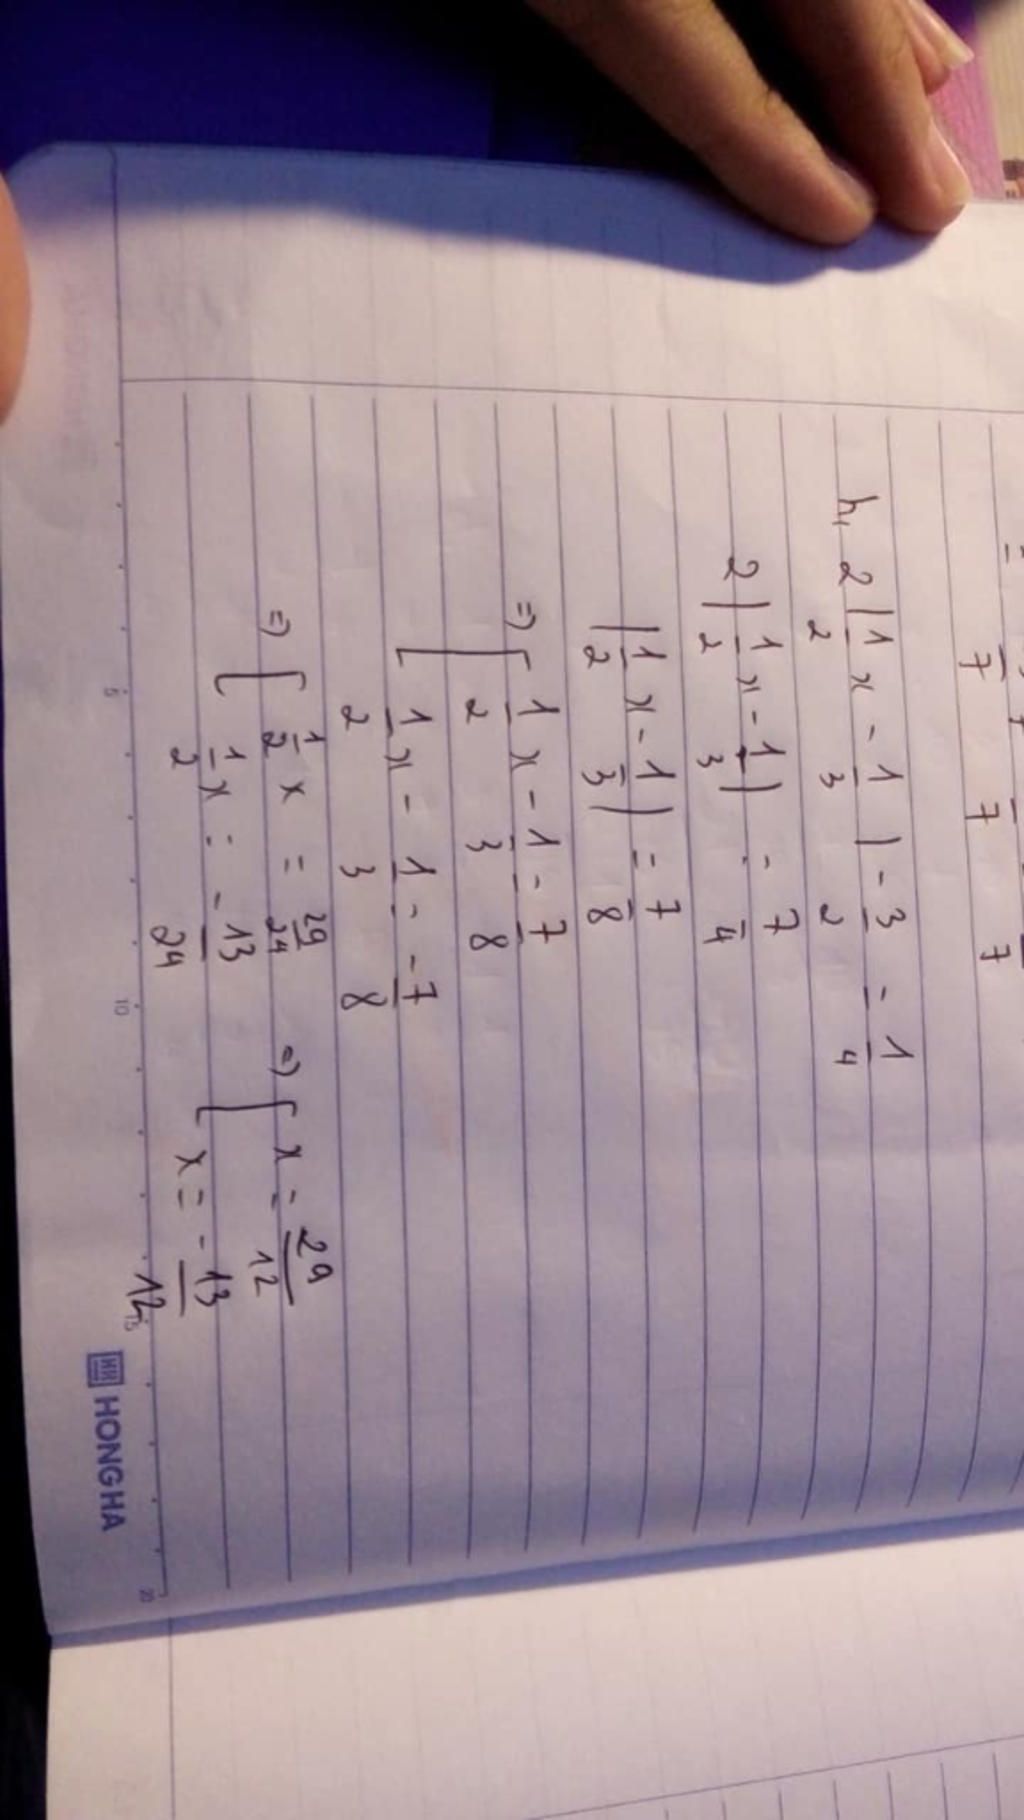 7 7 7
h, 2 |1/2 x - 1/3| - 3/2 = 1/4
2 |1/2 x - 1/3| = 7/4
|1/2 x - 1/3| = 7/8
=> [ 1/2 x - 1/3 = 7/8
1/2 x - 1/3 = -7/8
=> [ 1/2 x = 29/24 => [ x = 29/12
1/2 x = -13/24 x = -13/12
5 10 15 20
HH HONG HA